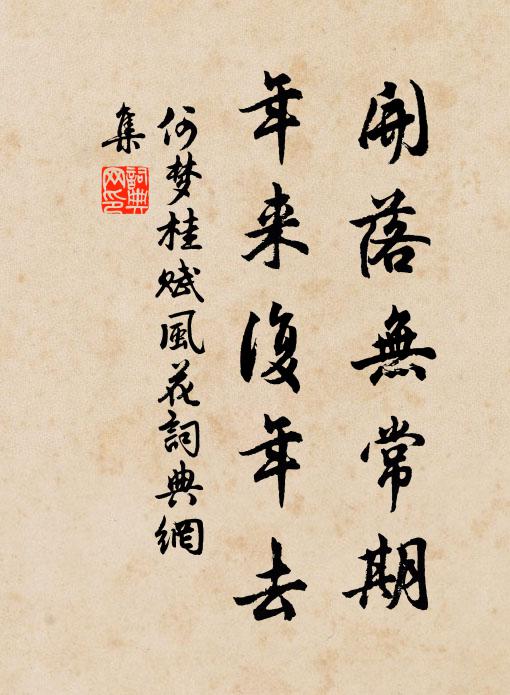 開落無常期
年来復年去
何梦桂赋風花詞典網
集
詞典
网印